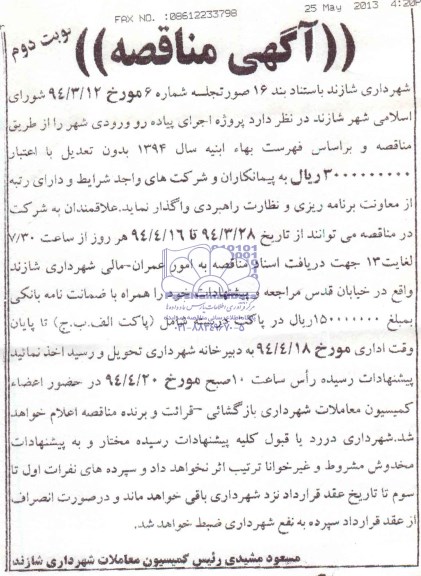 FAX NO. :08612233798 25 May 2013 4:20P
نوبت دوم
((آگهی مناقصه))
شهرداری شازند باستناد بند ۱۶ صورتجلسه شماره ۶ مورخ ۹۴/۳/۱۲ شورای
اسلامی شهر شازند در نظر دارد پروژه اجرای پیاده رو ورودی شهر را از طریق
مناقصه و براساس فهرست بهاء ابنیه سال ۱۳۹۴ بدون تعدیل با اعتبار
۳۰۰۰۰۰۰۰۰۰ ریال به پیمانکاران و شرکت های واجد شرایط و دارای رتبه
از معاونت برنامه ریزی و نظارت راهبردی واگذار نماید.علاقمندان به شرکت
در مناقصه می توانند از تاریخ ۹۴/۳/۲۸ تا ۹۴/۴/۱۶ هر روز از ساعت ۷/۳۰
لغایت۱۳ جهت دریافت اسناد مناقصه به امور عمران-مالی شهرداری شازند
واقع در خیابان قدس مراجعه و پیشنهادات خود را همراه با ضمانت نامه بانکی
بمبلغ ۱۵۰۰۰۰۰۰۰ریال در پاکت دربسته شامل (پاکت الف.ب.ج) تا پایان
وقت اداری مورخ ۹۴/۴/۱۸ به دبیرخانه شهرداری تحویل و رسید اخذ نمائید
پیشنهادات رسیده رأس ساعت ۱۰صبح مورخ ۹۴/۴/۲۰ در حضور اعضاء
کمیسیون معاملات شهرداری بازگشائی -قرائت و برنده مناقصه اعلام خواهد
شد.شهرداری دررد یا قبول کلیه پیشنهادات رسیده مختار و به پیشنهادات
مخدوش مشروط و غیرخوانا ترتیب اثر نخواهد داد و سپرده های نفرات اول تا
سوم تا تاریخ عقد قرارداد نزد شهرداری باقی خواهد ماند و درصورت انصراف
از عقد قرارداد سپرده به نفع شهرداری ضبط خواهد شد.
مسعود مشیدی رئیس کمیسیون معاملات شهرداری شازند